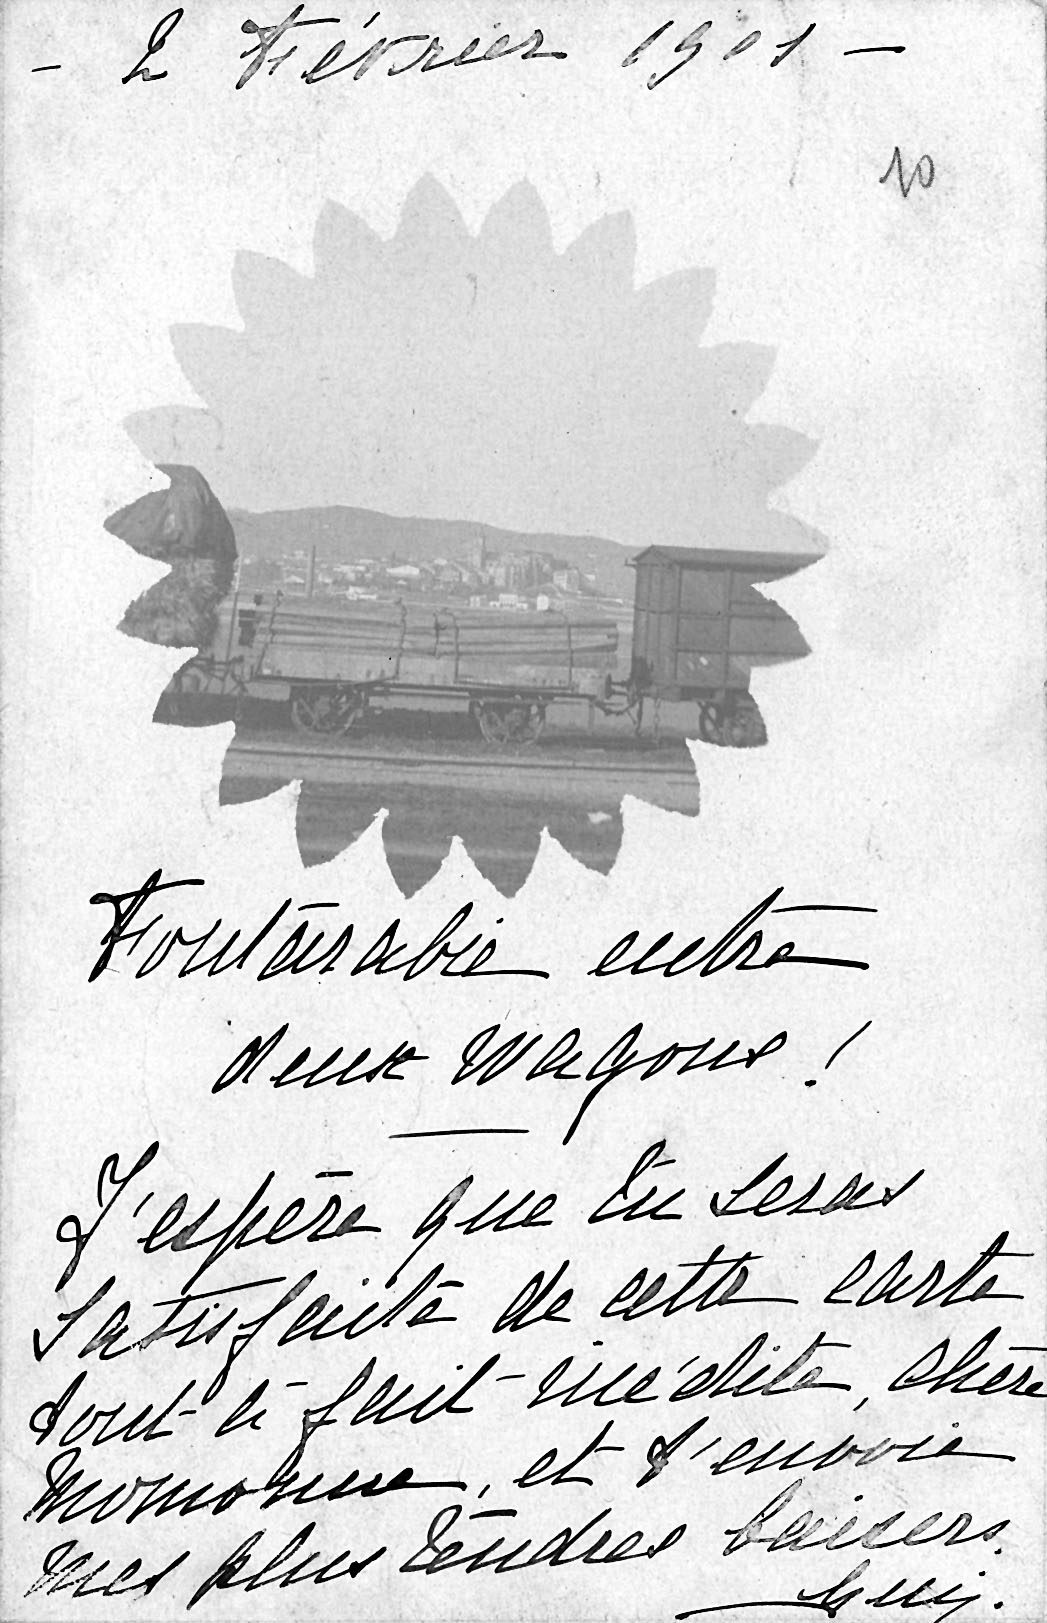 - 2 Février 1901 -
10
Fontarabie entre
deux wagons !
J'espère que tu seras
satisfaite de cette carte
tout à fait inédite, chère
Momonne, et t'envoie
mes plus tendres baisers.
Guy.